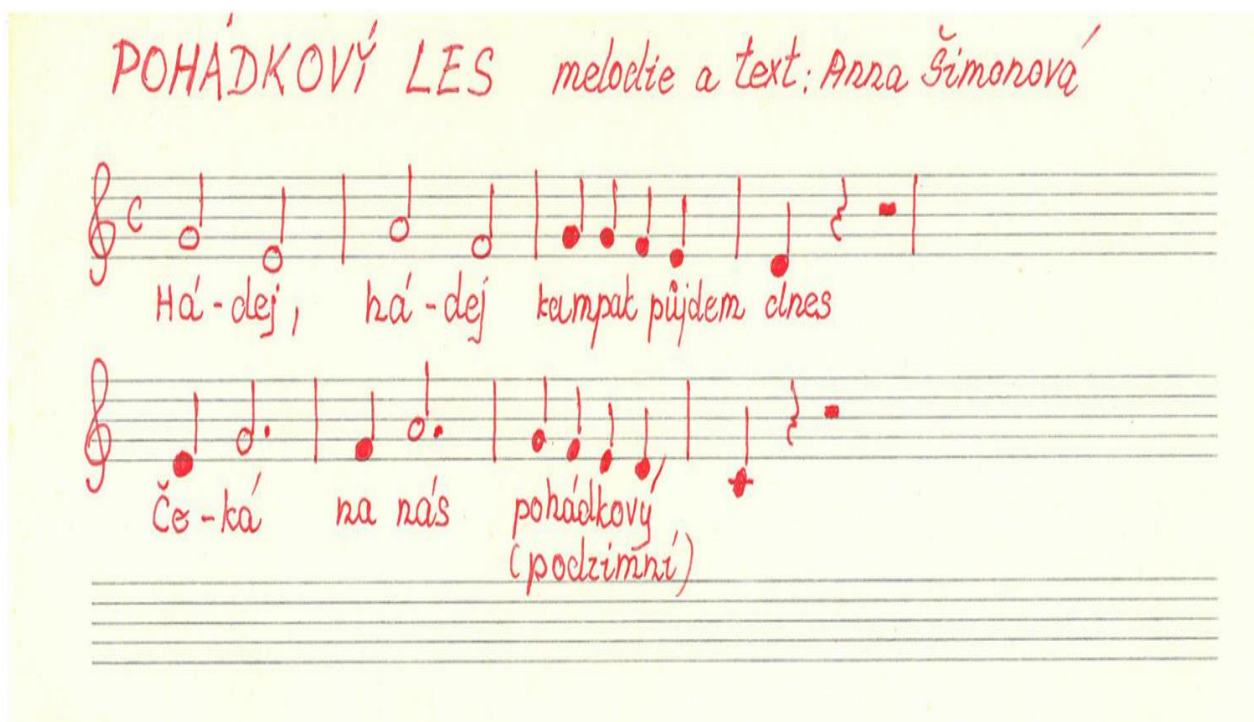 POHÁDKOVÝ LES melodie a text: Anna Šimonová
C
Há-dej, há-dej kampak půjdem dnes
Če-ká na nás pohádkový,
(podzimní)